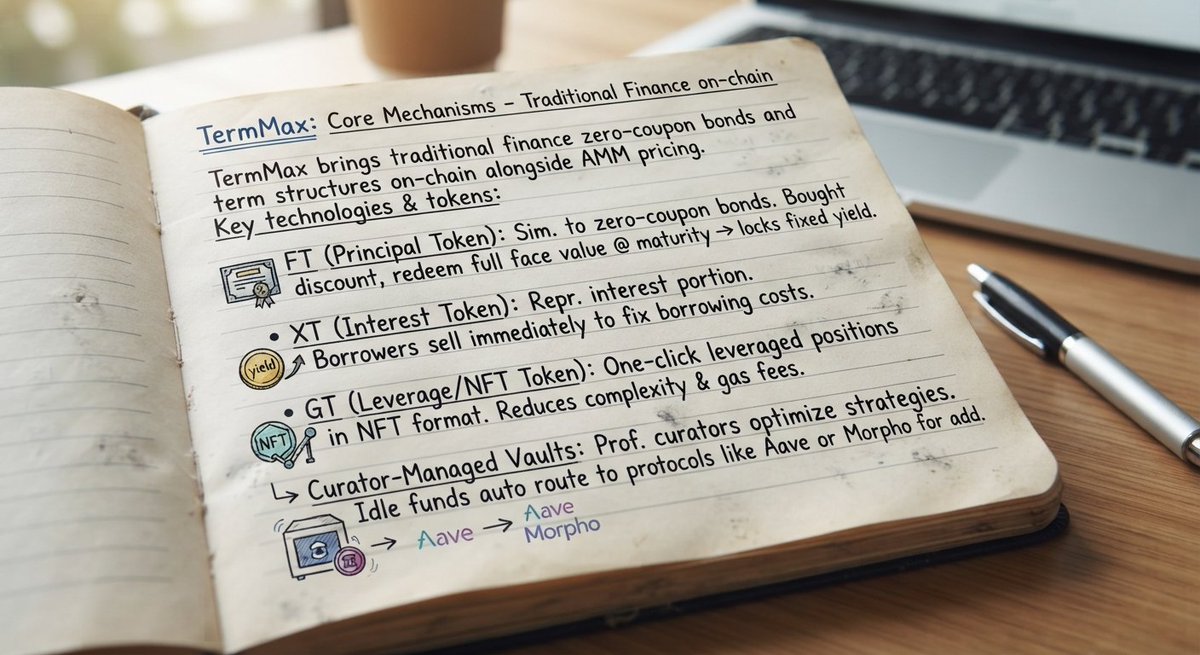 TermMax: Core Mechanisms – Traditional Finance on-chain
TermMax brings traditional finance zero-coupon bonds and
term structures on-chain alongside AMM pricing.
Key technologies & tokens:
FT (Principal Token): Sim. to zero-coupon bonds. Bought
discount, redeem full face value @ maturity → locks fixed yield.
• XT (Interest Token): Repr. interest portion.
yield
Borrowers sell immediately to fix borrowing costs.
• GT (Leverage/NFT Token): One-click leveraged positions
NFT
in NFT format. Reduces complexity & gas fees.
↳ Curator-Managed Vaults: Prof. curators optimize strategies.
Idle funds auto route to protocols like Aave or Morpho for add.
→ Aave → Aave
Morpho